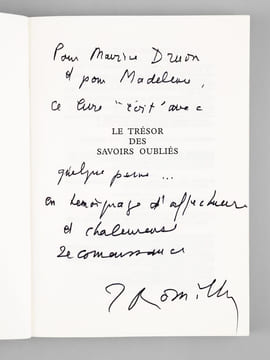 Pour Maurice Druon
et pour Madeleine,
ce livre "écrit" avec
LE TRÉSOR
DES
SAVOIRS OUBLIÉS
quelque peine...
en témoignage d'affectueuse
et chaleureuse
reconnaissance
J Romilly